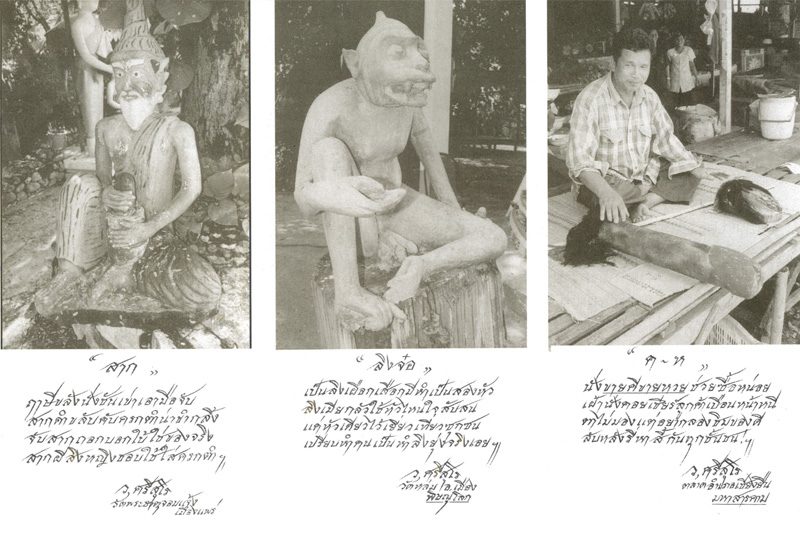 “ สาก ”
ฤาษีขลังนั่งชันเข่าเอามือจับ
สากตำขลับคับครกทำน่าขำกลิ้ง
จับสากถอกบอกใบ้ใช้ของจริง
สากผีสิงหญิงชอบใช้ใส่ครกตำฯ
ว. ศรีสุโร
วัดพระธาตุจอมแจ้ง
เมืองแพร่
“ ลิงจ๋อ ”
เป็นลิงเผือกเสือกมีทำเป็นสองหัว
ลิงเมียกลัวใช้หัวไหนใจสับสน
แต่หัวเดียวไร้เขี้ยวเที่ยวซุกซน
เปรียบทำคนเป็นทำลิงยุ่งจริงเอยฯ
ว. ศรีสุโร
วัดหล่ม อ. เมือง
พิษณุโลก
“ ค - ห ”
นั่งขายคีขายหวยช่วยซื้อหน่อย
เฝ้านั่งคอยเชียร์ลูกค้าเบือนหน้าหนี
ตาไม่มองแต่อยากลองชิมของดี
สบหลังรี่หา สี้ กันทุกชั้นชนฯ
ว. ศรีสุโร
ตลาดอำเภอเชียงยืน
มหาสารคาม